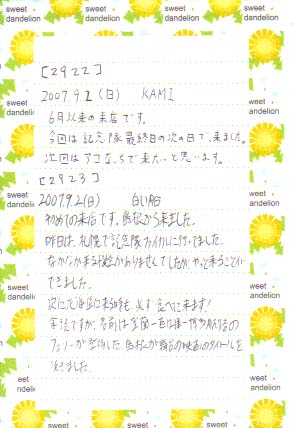 sweet dandelion
sweet dandelion
sweet dandelion
[2922]
2007.9.2(日) KAMI
6月以来の来店です。
今回は記念隊最終日の次の日で、来ました。
次回はアコなしで来たいと思います。
[2923]
2007.9.2(日) 白い船
初めての来店です。島根から来ました。
昨日は、札幌で記念隊ファイナルに行ってました。
なかなか来る機会がありませんでしたが、やっと来ることが
できました。
次に北海道に来る時も、必ず食べに来ます!
余談ですが、名前は
フェリーが登場した島根が舞台の映画のタイトルを
sweet dandelion
sweet dandelion
sweet dandelion
sweet dandelion